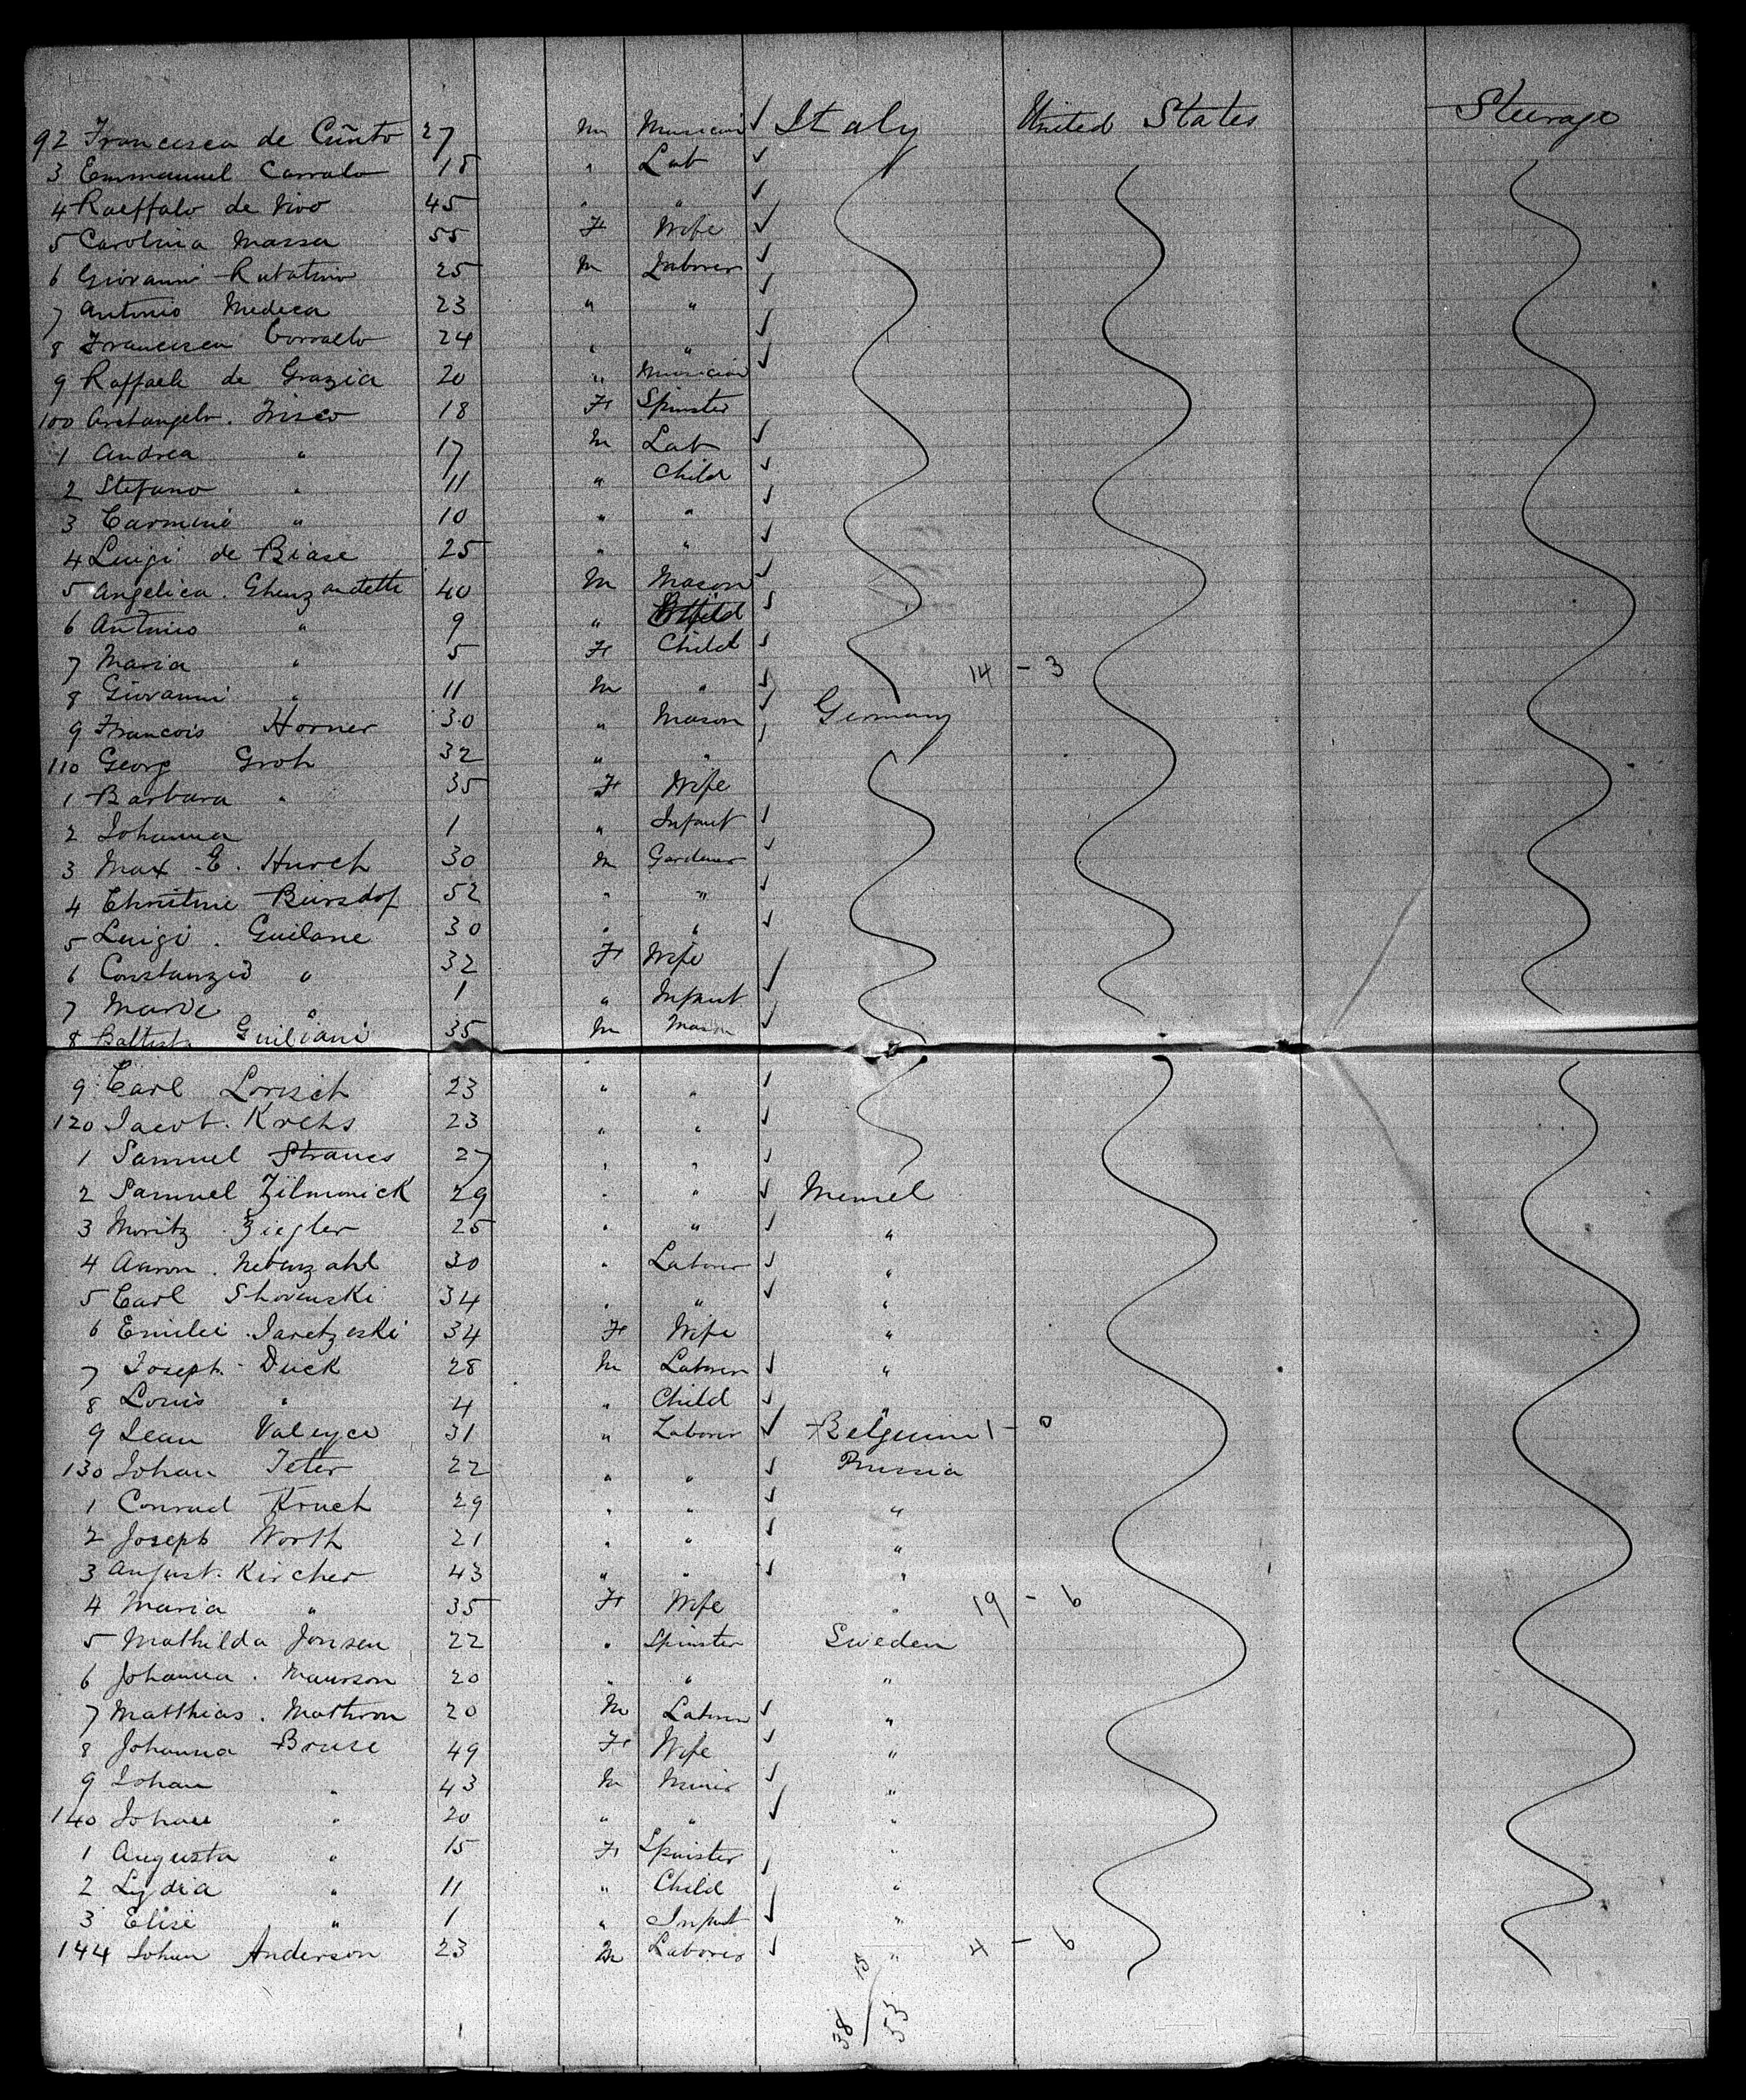 92 Francesca de Cuñto 27 m Musician ✓ Italy United States Steerage
3 Emmanuel Carralo 18 " Lab ✓
4 Raeffalo de Vivo 45 " " ✓
5 Carolina Massa 55 F Wife ✓
6 Giovanni Rubatino 25 m Laborer ✓
7 Antonio Medeca 23 " " ✓
8 Francesca Corrallo 24 " " ✓
9 Raffaele de Grazia 20 " Musician ✓
100 Archangelo. Frisco 18 F Spinster
1 Andrea " 17 m Lab ✓
2 Stefano " 11 " Child ✓
3 Carmine " 10 " " ✓
4 Luigi de Biase 25 " " ✓
5 Angelica. 40 m Mason ✓
6 Antonio " 9 " ✓
7 Maria " 5 F Child ✓ 14 - 3
8 Giovanni " 11 m " ✓
9 Francois Horner 30 " Mason ✓ Germany
110 Georg Groh 32 " " ✓
1 Barbara " 35 F Wife
2 Johanna 1 " Infant ✓
3 Max E. Hursh 30 m Gardener ✓
4 Christine 52 " " ✓
5 Luigi. Guilane 30 " " ✓
6 Constanzio " 32 F Wife
7 Marie " 1 " Infant ✓
8 Battista Guiliani 35 m Mason ✓
9 Carl Lorisch 23 " " ✓
120 Jacob. Krehs 23 " " ✓
1 Samuel Straucs 27 " " ✓
2 Samuel Zilmonick 29 " " ✓ Memel
3 Moritz Ziegler 25 " " ✓ "
4 Aaron. Nebenzahl 30 " Laborer ✓ "
5 Carl Shovenski 34 " " ✓ "
6 Emilei. Jaretzeski 34 F Wife "
7 Joseph. Duck 28 m Laborer ✓ "
8 Louis " 4 " Child ✓ "
9 Jean Valeyce 31 " Laborer ✓ Belgium 1 - 0
130 Johan Teter 22 " " ✓ Prussia
1 Conrad Kruch 29 " " ✓ "
2 Joseph Worth 21 " " ✓ "
3 August. Kircher 43 " " ✓ "
4 Maria " 35 F Wife " 19 - 6
5 Mathilda Jonsen 22 " Spinster Sweden
6 Johanna. Maurson 20 " " "
7 Matthias. Mathson 20 m Laborer ✓ "
8 Johanna Bruse 49 F Wife ✓ "
9 Johan " 43 m Miner ✓ "
140 Johan " 20 " " ✓ "
1 Augusta " 15 F Spinster ✓ "
2 Lydia " 11 " Child "
3 Elise " 1 " Infant ✓ "
144 Johan Anderson 23 m Laborer ✓ " 4 - 6
38 / 15
53